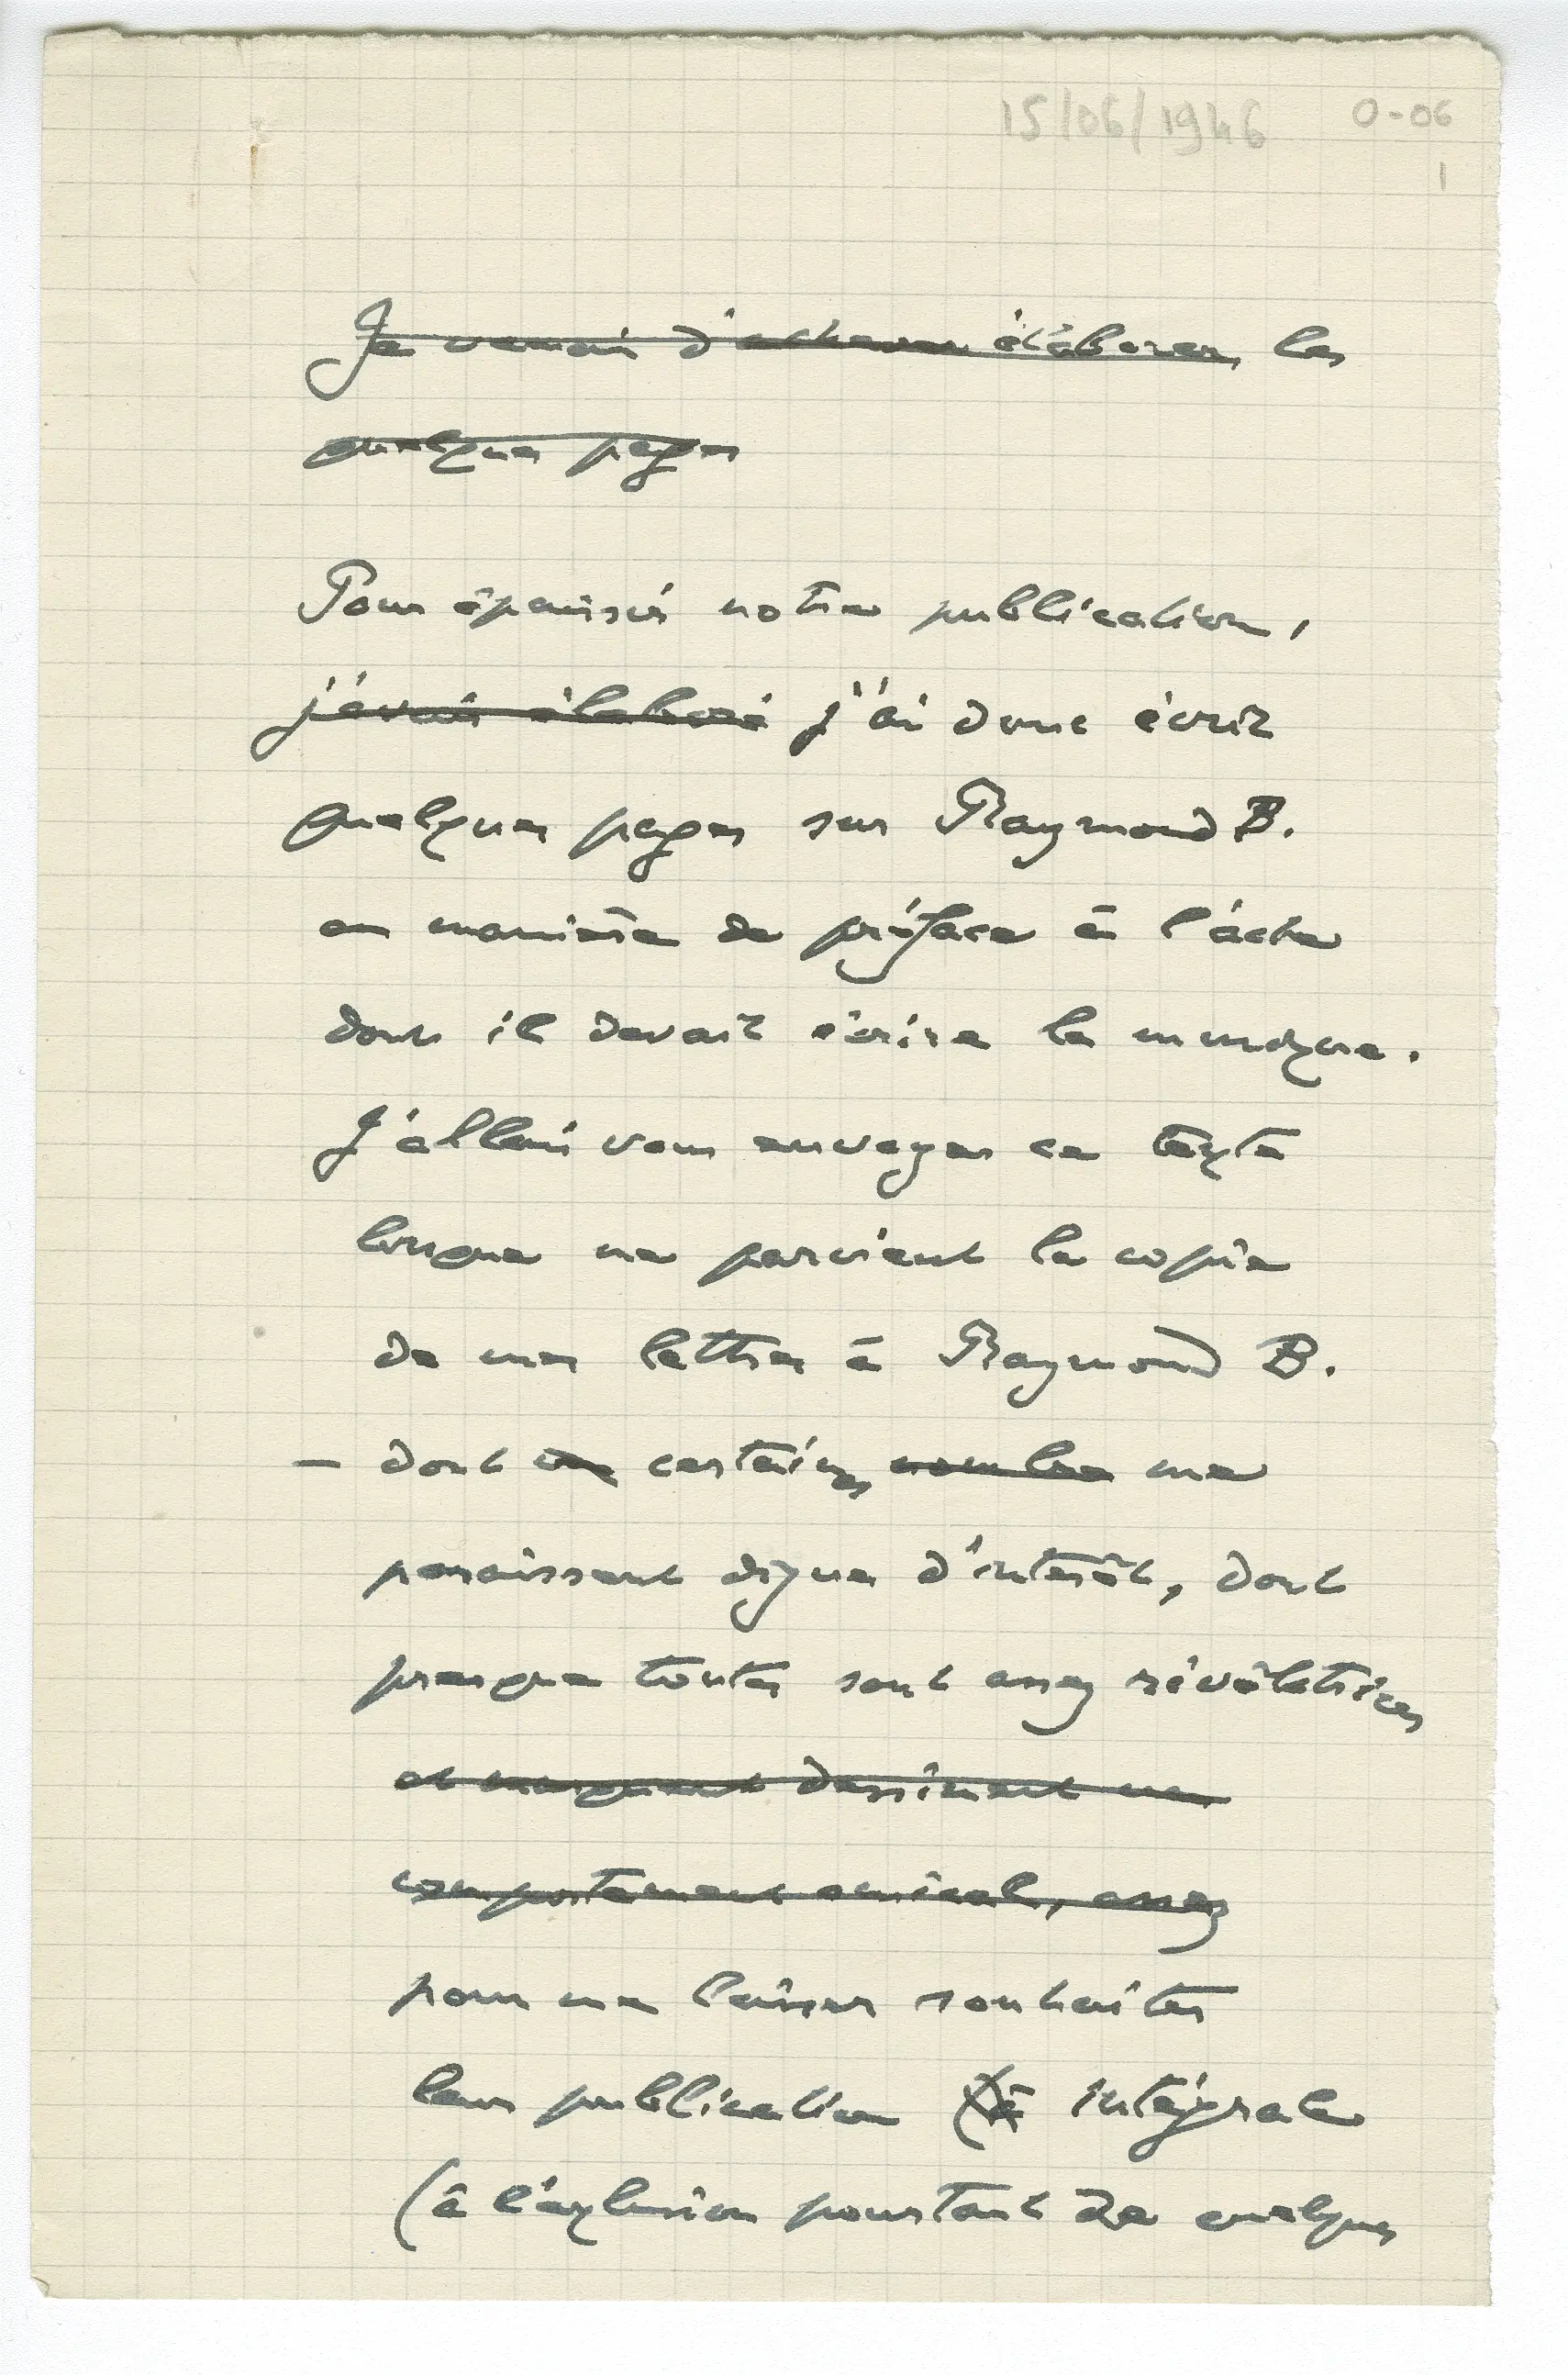 15/06/1946 0-06
1
Je venais d'achever élaborer les
quelques pages
Pour épaissir notre publication,
j'avais élaboré j'ai donc écrit
quelques pages sur Raymond B.
en manière de préface à l'acte
dont il devait écrire la musique.
J'allais vous envoyer ce texte
lorsque me parvient la copie
de mes lettres à Raymond B.
— dont certaines nombre me
paraissent dignes d'intérêt, dont
presque toutes sont assez révélatrices
et dessinent un
comportement amical, assez
pour me laisser souhaiter
leur publication intégrale
(à l'exclusion pourtant de quelques